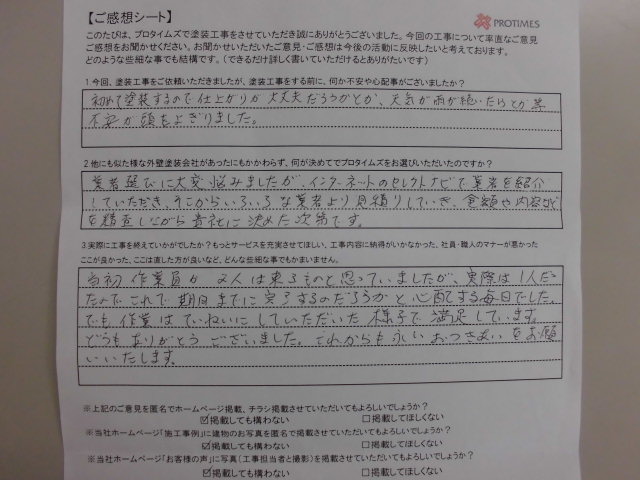 【ご感想シート】
PROTIMES
このたびは、プロタイムズで塗装工事をさせていただき誠にありがとうございました。今回の工事について率直なご意見
ご感想をお聞かせください。お聞かせいただいたご意見・ご感想は今後の活動に反映したいと考えております。
どのような些細な事でも結構です。(できるだけ詳しく書いていただけるとありがたいです)
1.今回、塗装工事をご依頼いただきましたが、塗装工事をする前に、何か不安や心配事がございましたか?
初めて塗装するので仕上がりが大丈夫だろうかとか、天気が雨が続いたらとか等
不安が頭をよぎりました。
2.他にも似た様な外壁塗装会社があったにもかかわらず、何が決めてでプロタイムズをお選びいただいたのですか?
業者選びに大変悩みましたが、インターネットのセレクトナビで業者を紹介
していただき、そこからいろいろな業者より見積りしていき、金額や内容など
を精査しながら貴社に決めた次第です。
3.実際に工事を終えていかがでしたか?もっとサービスを充実させてほしい、工事内容に納得がいかなかった、社員・職人のマナーが悪かった
ここが良かった、ここは直した方が良いなど、どんな些細な事でもかまいません。
当初作業員が2人は来るものと思っていましたが、実際は1人だっ
たので、これで期日までに完了するのだろうかと心配する毎日でした。
でも作業はていねいにしていただいた様子で満足しています。
どうもありがとうございました。これからも永いおつきあいをお願
いいたします。
※上記のご意見を匿名でホームページ掲載、チラシ掲載させていただいてもよろしいでしょうか?
☑掲載しても構わない □掲載してほしくない
※当社ホームページ「施工事例」に建物のお写真を匿名で掲載させていただいてもよろしいでしょうか?
☑掲載しても構わない □掲載してほしくない
※当社ホームページ「お客様の声」に写真(工事担当者と撮影)を掲載させていただいてもよろしいでしょうか?
☑掲載しても構わない □掲載してほしくない